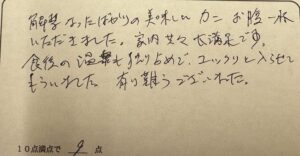 解禁なったばかりの美味しいカニお腹一杯
いただきました。家内共々大満足です。
食後の温泉も独り占めで、ユックリと入らせて
もらいました。有り難うございました。
10点満点で 9 点